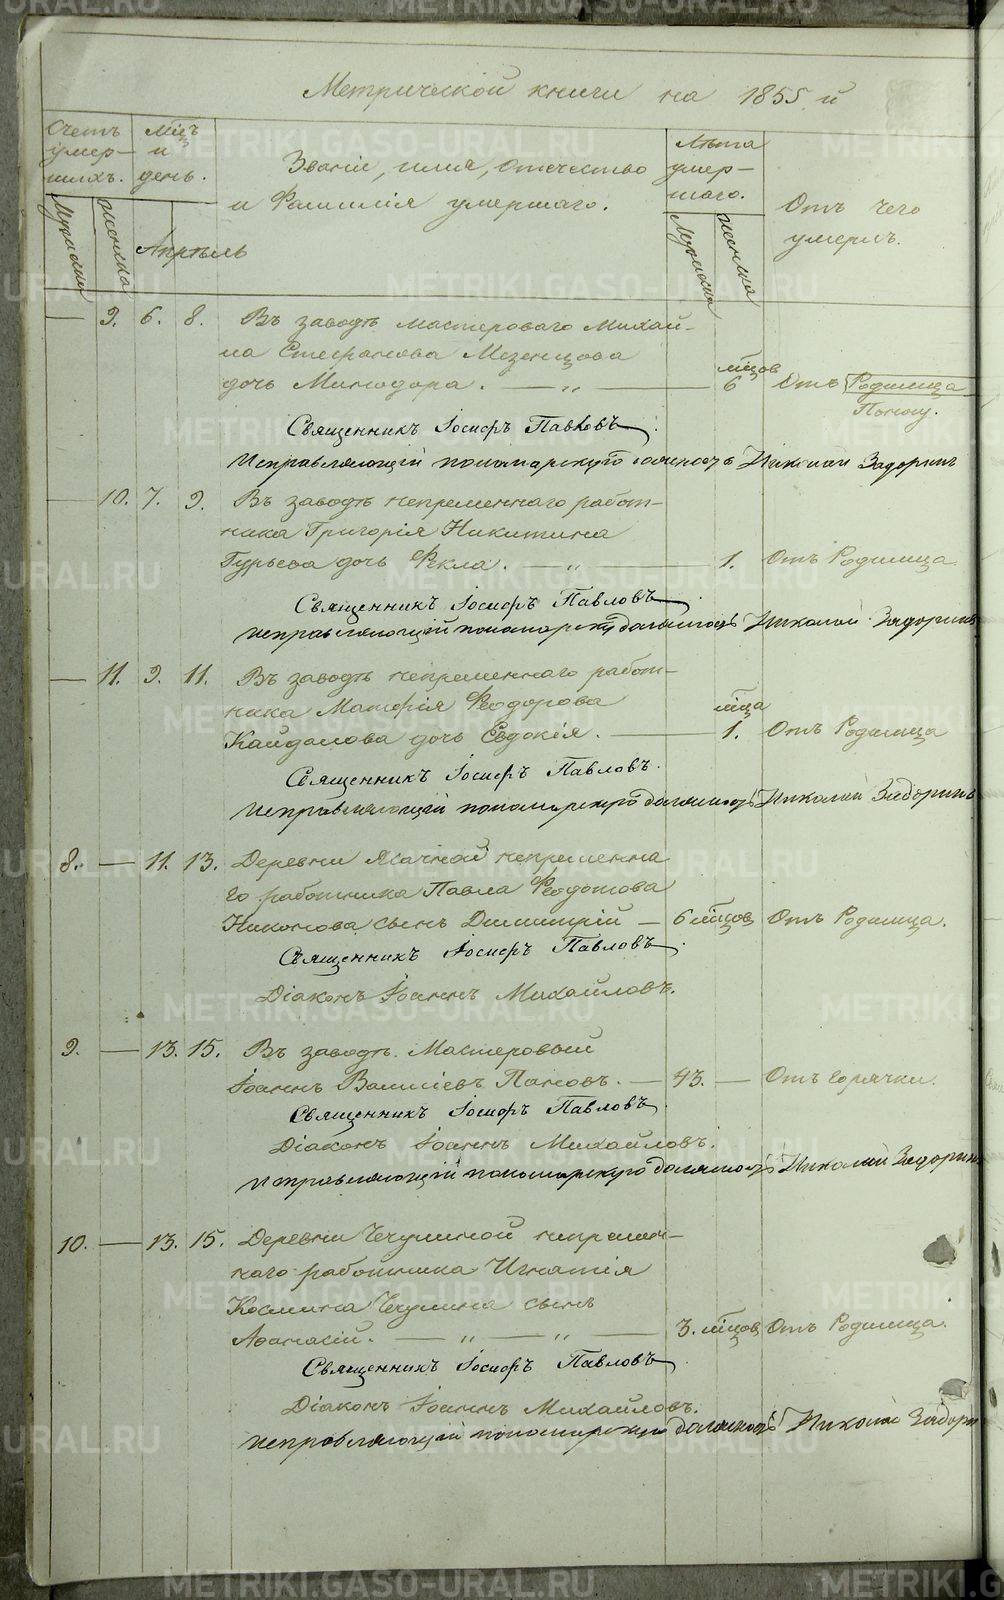 Метрической книги на 1855 й
Счетъ умер-шихъ.
Мужеска
Женска
Мѣсц и день.
Апрѣль
Званіе, имя, отечество
и Фамилія умершаго.
Лѣта умер-шаго.
Мужеска
Женска
Отъ чего
умеръ.
— 9. 6. 8. Въ заводѣ мастероваго Михай-
ла Стефанова Мезенцова
дочь Минодора. — „ — мѣсцов 6 Отъ Родимца
Поносу.
Священникъ Іосифъ Павловъ.
Исправляющій пономарскую должность Николай Задоринъ
— 10. 7. 9. Въ заводѣ непременнаго работ-
ника Григорія Никитина
Гурьева дочь Фекла. — „ — 1. Отъ Родимца
Священникъ Іосифъ Павловъ.
Исправляющій пономарскую должность Николай Задоринъ
— 11. 9. 11. Въ заводѣ непременнаго работ-
ника Матфія Феодорова
Кайдалова дочь Евдокія. — мѣсца 1. Отъ Родимца
Священникъ Іосифъ Павловъ.
Исправляющій пономарскую должность Николай Задоринъ
8. — 11. 13. Деревни Ясачной непременна
го работника Павла Феодотова
Никонова сынъ Димитрій — 6 мѣсцов Отъ Родимца.
Священникъ Іосифъ Павловъ.
Діаконъ Іоаннъ Михайловъ.
9. — 13. 15. Въ заводѣ. Мастеровый
Іоаннъ Васильевъ Пановъ. — 43. — Отъ горячки.
Священникъ Іосифъ Павловъ.
Діаконъ Іоаннъ Михайловъ.
Исправляющій пономарскую должность Николай Задоринъ
10. — 13. 15. Деревни Чечулиной непремен-
наго работника Игнатія
Космина Чечулина сынъ
Афанасій. — „ — „ — 3. мѣсцов Отъ Родимца.
Священникъ Іосифъ Павловъ.
Діаконъ Іоаннъ Михайловъ.
Исправляющій пономарскую должность Николай Задори
METRIKI.GASO-URAL.RU